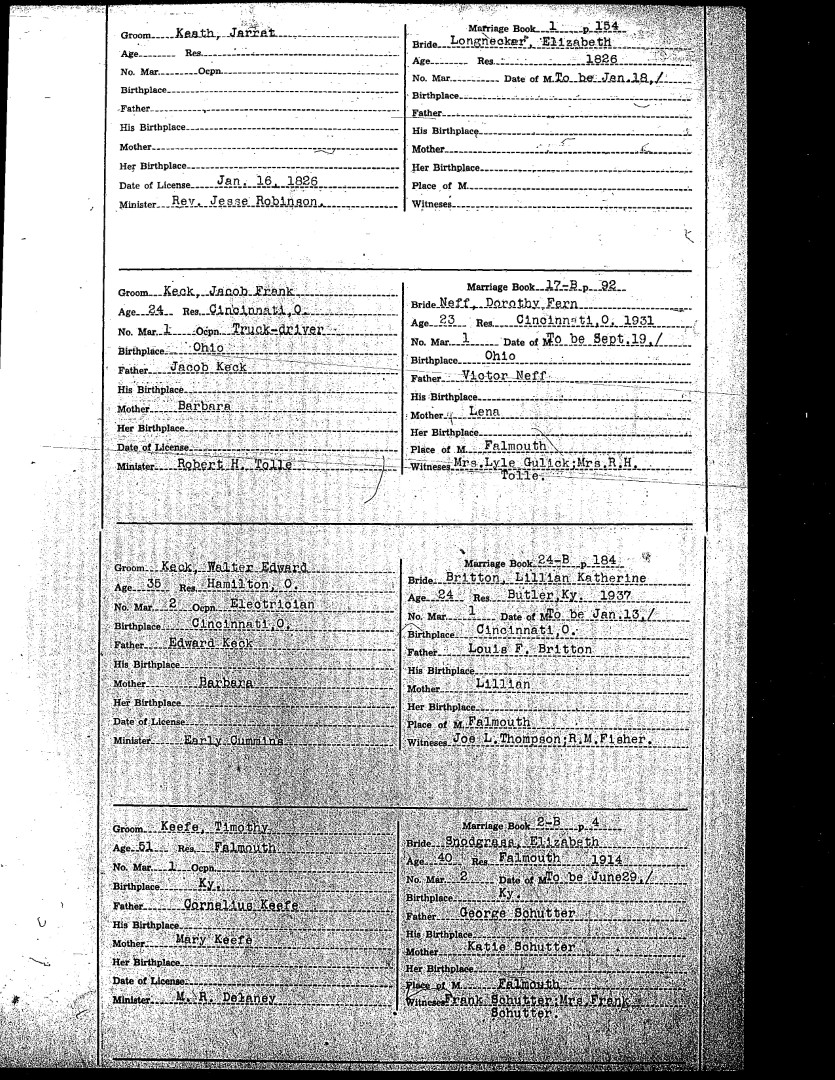 Groom Keath, Jarret
Age Res.
No. Mar. Ocpn.
Birthplace
Father
His Birthplace
Mother
Her Birthplace
Date of License Jan. 16, 1826
Minister Rev. Jesse Robinson.
Marriage Book 1 p. 154
Bride Longnecker, Elizabeth
Age Res. 1826
No. Mar. Date of M. To be Jan.18,/
Birthplace
Father
His Birthplace
Mother
Her Birthplace
Place of M.
Witneses
Groom Keck, Jacob Frank
Age 24 Res. Cincinnati,O.
No. Mar. 1 Ocpn. Truck-driver
Birthplace Ohio
Father Jacob Keck
His Birthplace
Mother Barbara
Her Birthplace
Date of License
Minister Robert H. Tolle
Marriage Book 17-B p. 92
Bride Neff, Dorothy Fern
Age 23 Res. Cincinnati,O. 1931
No. Mar. 1 Date of M. To be Sept.19,/
Birthplace Ohio
Father Victor Neff
His Birthplace
Mother Lena
Her Birthplace
Place of M. Falmouth
Witneses Mrs.Lyle Gulick;Mrs.R.H.
Tolle.
Groom Keck, Walter Edward
Age 35 Res. Hamilton, O.
No. Mar. 2 Ocpn. Electrician
Birthplace Cincinnati,O.
Father Edward Keck
His Birthplace
Mother Barbara
Her Birthplace
Date of License
Minister Early Cummins
Marriage Book 24-B p. 184
Bride Britton, Lillian Katherine
Age 24 Res. Butler,Ky. 1937
No. Mar. 1 Date of M. To be Jan.13,/
Birthplace Cincinnati,O.
Father Louis F. Britton
His Birthplace
Mother Lillian
Her Birthplace
Place of M. Falmouth
Witneses Joe L.Thompson;R.M.Fisher.
Groom Keefe, Timothy
Age 51 Res. Falmouth
No. Mar. 1 Ocpn.
Birthplace Ky.
Father Cornelius Keefe
His Birthplace
Mother Mary Keefe
Her Birthplace
Date of License
Minister M. R. Delaney
Marriage Book 2-B p. 4
Bride Snodgrass, Elizabeth
Age 40 Res. Falmouth 1914
No. Mar. 2 Date of M. To be June29,/
Birthplace Ky.
Father George Schutter
His Birthplace
Mother Katie Schutter
Her Birthplace
Place of M. Falmouth
Witneses Frank Schutter;Mrs.Frank
Schutter.